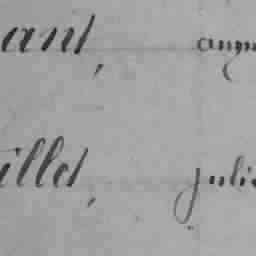 ant, augu
illet, juli